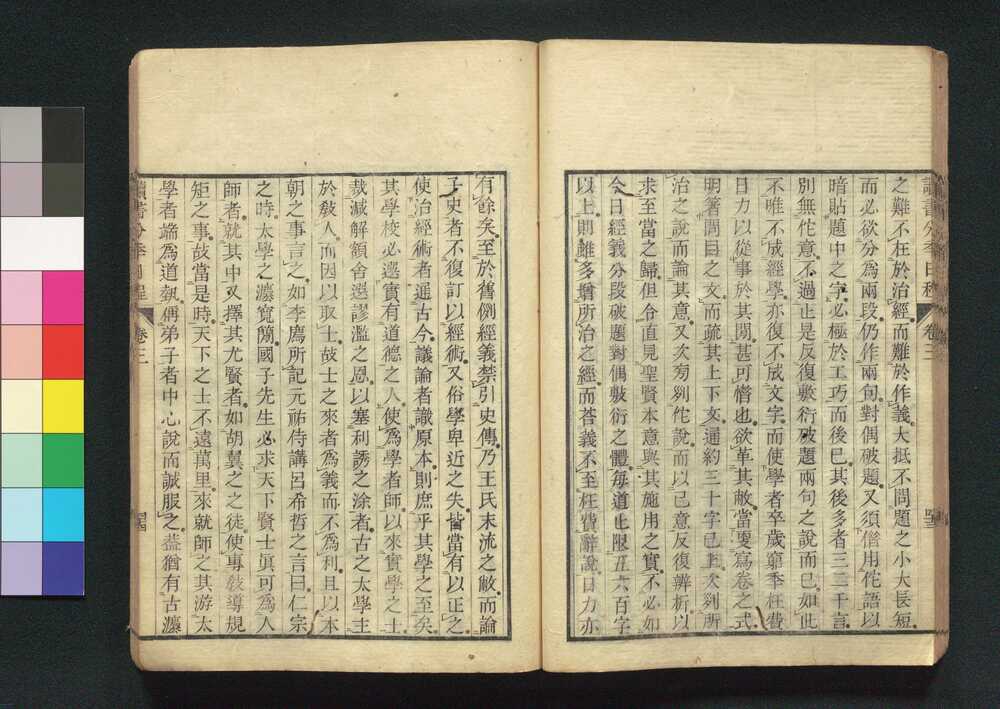 讀書分年日程 卷三
之難不在於治經而難於作義大抵不問題之小大長短
而必欲分爲兩段仍作兩句對偶破題又須借用佗語以
暗貼題中之字必極於工巧而後已其後多者三二千言
別無佗意不過止是反復敷衍破題兩句之說而已如此
不唯不成經學亦復不成文字而使學者卒歲窮年枉費
日力以從事於其閒甚可惜也欲革其敝當更寫卷之式
明著問目之文而疏其上下文通約三十字已上次列所
治之說而論其意又次旁列佗說而以已意反復辨析以
求至當之歸但令直見聖賢本意與其施用之實不必如
今日經義分段破題對偶敷衍之體每道止限五六百字
以上則雖多增所治之經而荅義不至枉費辭說日力亦
有餘矣至於舊例經義禁引史傳乃王氏末流之敝而論
子史者不復訂以經術又俗學卑近之失皆當有以正之
使治經術者通古今議論者識原本則庶乎其學之至矣
其學校必選實有道德之人使爲學者師以來實學之士
裁減解額舍選謬濫之恩以塞利誘之涂者古之太學主
於敎人而因以取士故士之來者爲義而不爲利且以本
朝之事言之如李廌所記元祐侍講呂希哲之言曰仁宗
之時太學之灋寬𥳑國子先生必求天下賢士眞可爲人
師者就其中又擇其尤賢者如胡翼之之徒使專敎導規
矩之事故當是時天下之士不遠萬里來就師之其游太
學者端爲道執稱弟子者中心說而誠服之葢猶有古灋
讀書分年日程 卷三